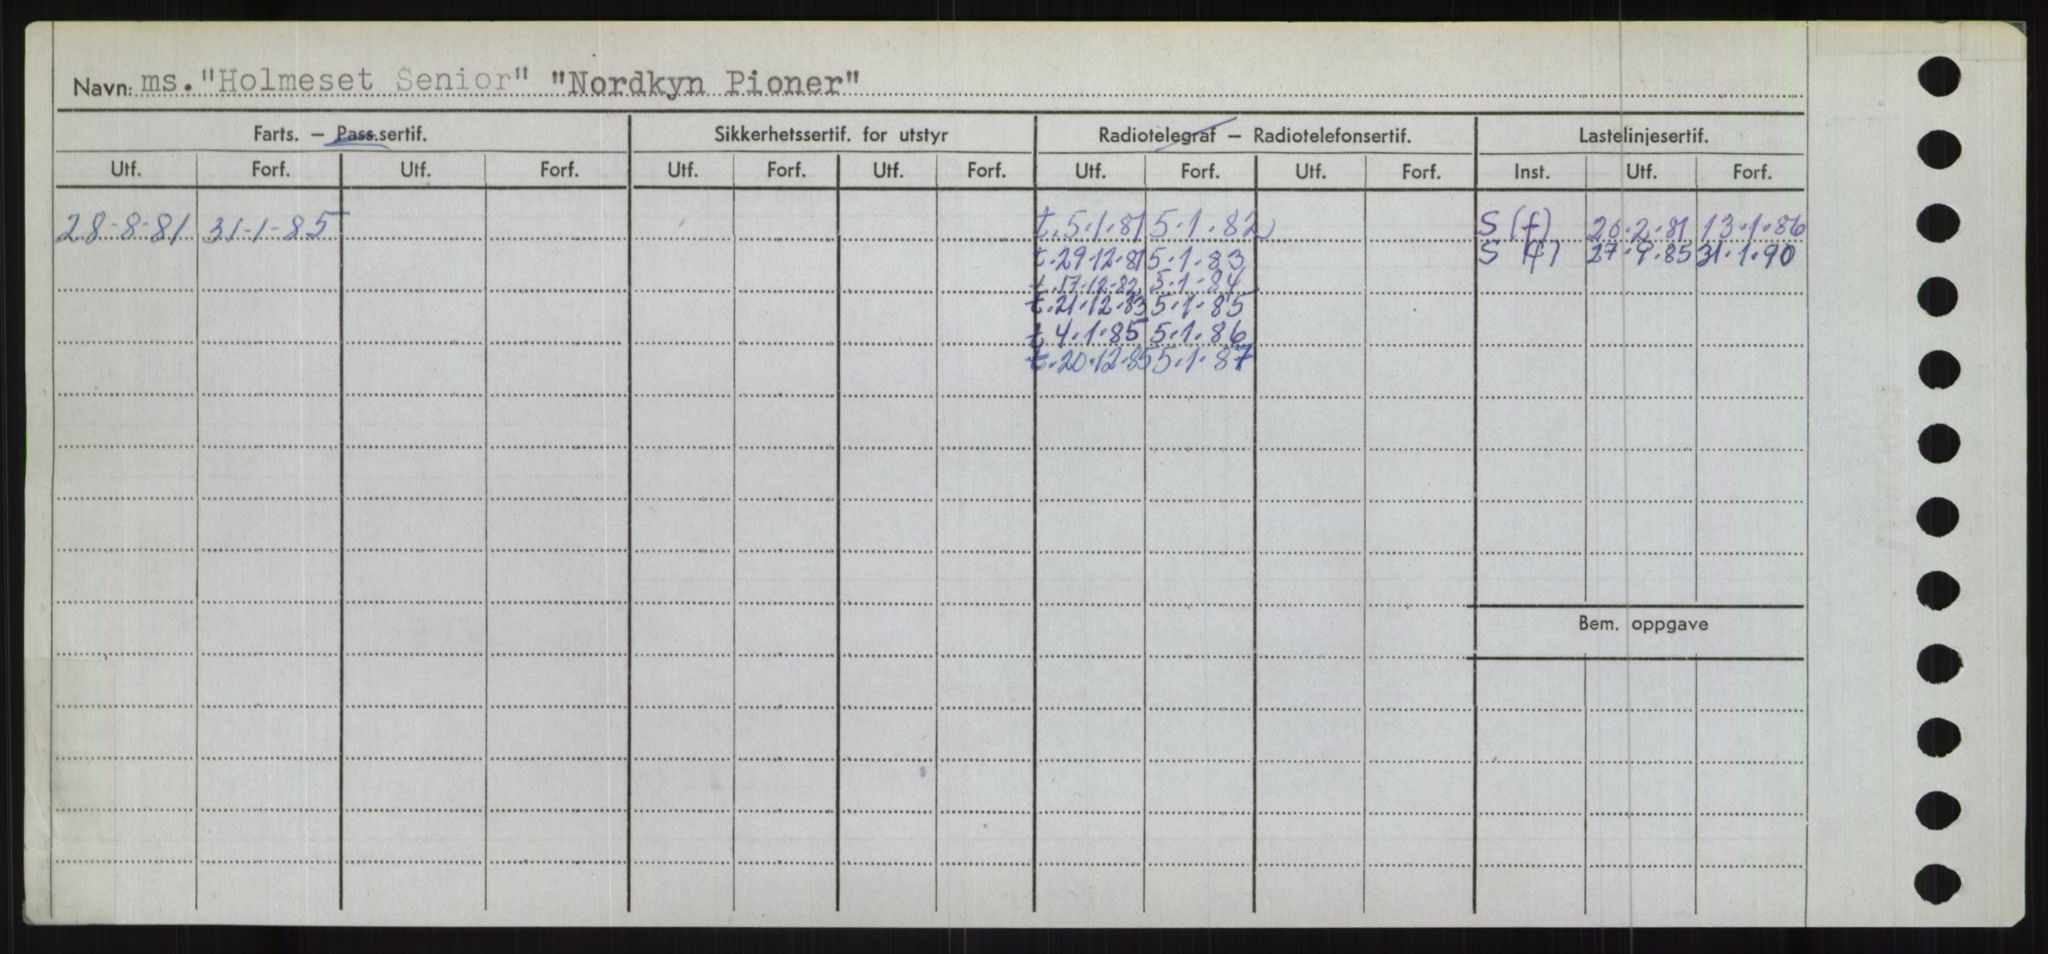 Navn: ms. "Holmeset Senior" "Nordkyn Pioner"
Farts. – Pass.sertif. Sikkerhetssertif. for utstyr Radiotelegraf – Radiotelefonsertif. Lastelinjesertif.
Utf. Forf. Utf. Forf. Utf. Forf. Utf. Forf. Utf. Forf. Utf. Forf. Inst. Utf. Forf.
28-8-81 31-1-85 t. 5.1.81 5.1.82 S (f) 26.2.81 13.1.86
t. 29.12.81 5.1.83 S (f) 27.9.85 31.1.90
t. 17.12.82 5.1.84
t. 21.12.83 5.1.85
t. 4.1.85 5.1.86
t. 20.12.85 5.1.87
Bem. oppgave